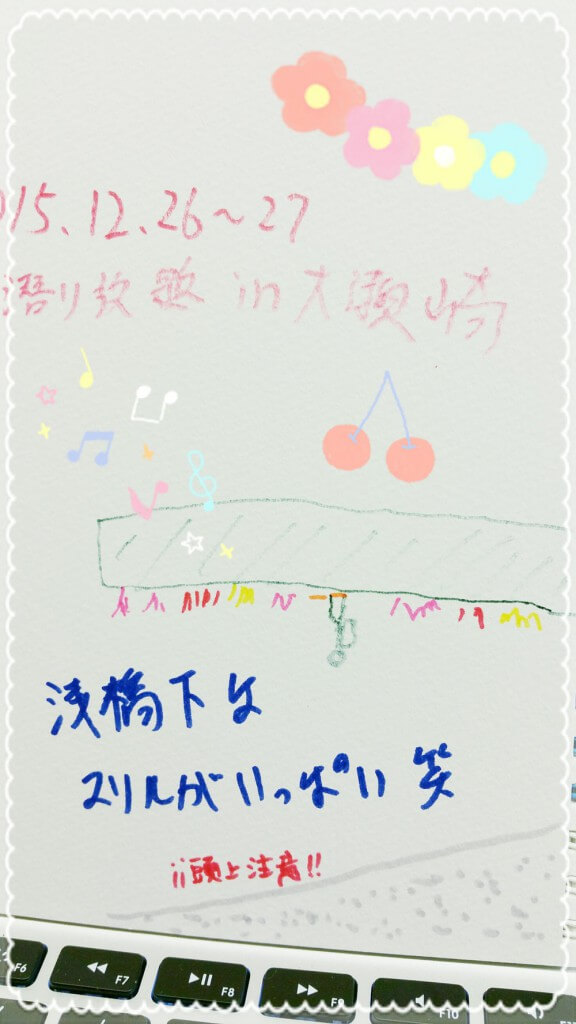 015.12.26~27
潜り放題 in 大瀬崎
浅橋下は
スリルがいっぱい 笑
¡¡頭上注意!!
F6
F7
F8
F9
F10